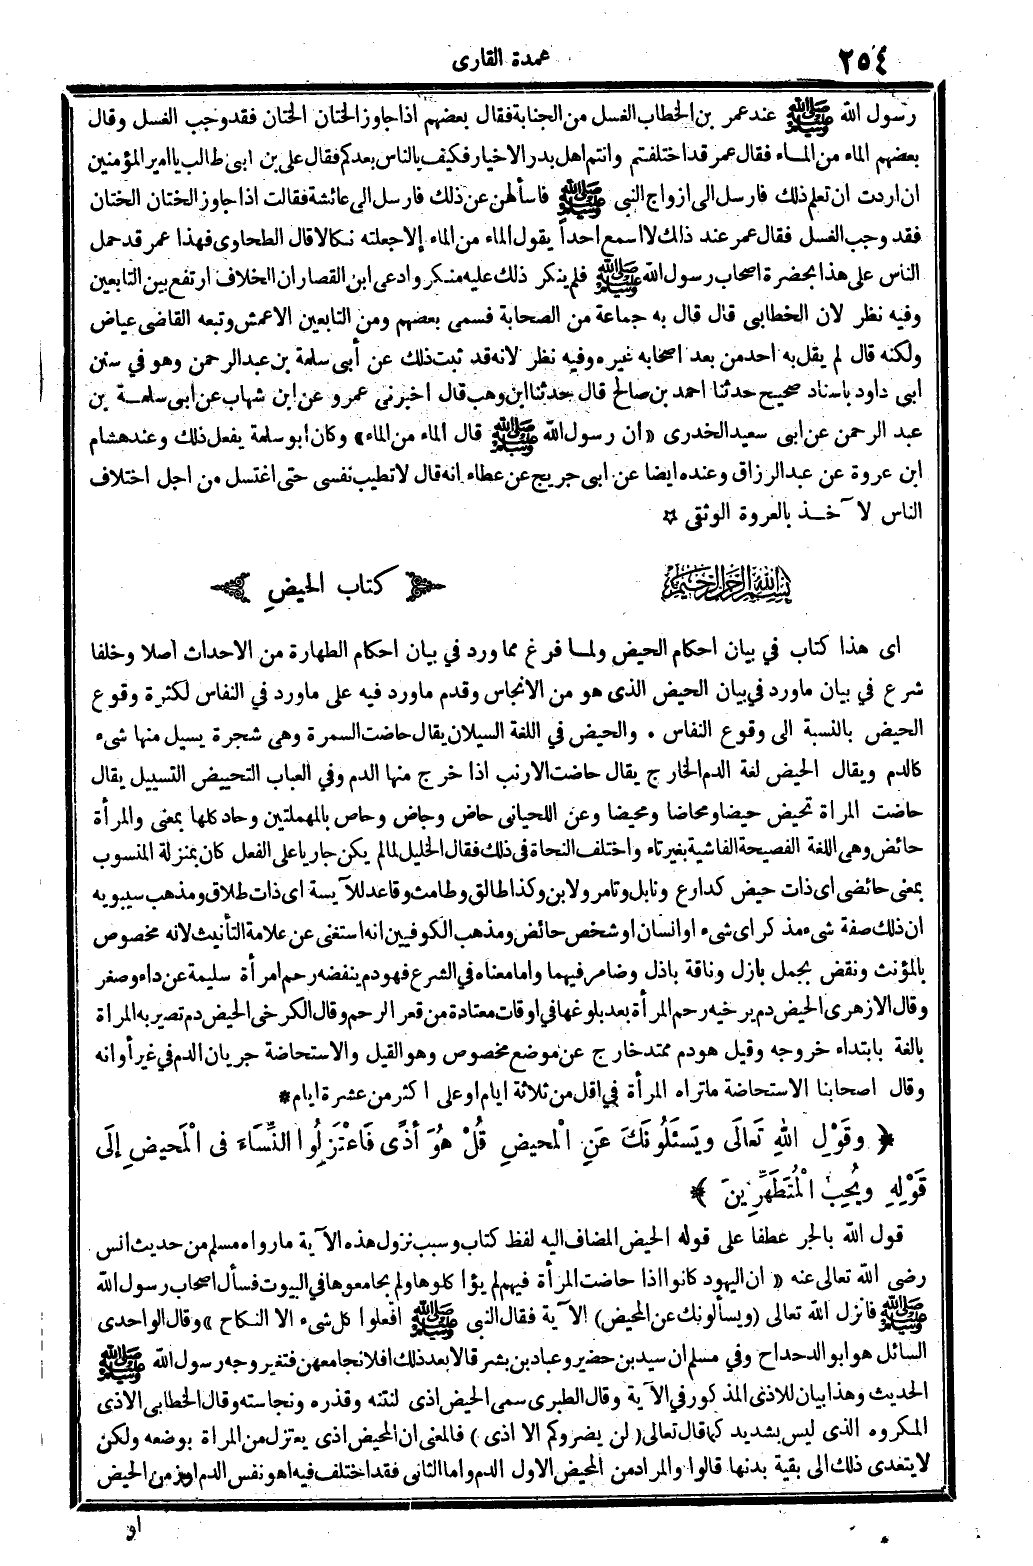 ٢٥٤
عمدة القارى
رسول الله ﷺ عند عمر بن الخطاب الغسل من الجنابة فقال بعضهم اذا جاوز الختان الختان فقد وجب الغسل وقال
بعضهم الماء من المــاء فقال عمر قد اختلفتم وانتم اهل بدر الاخيار فكيف بالناس بعدكم فقال على بن ابى طالب يا امير المؤمنين
ان اردت ان تعلم ذلك فارسل الى ازواج النبى ﷺ فاسألهن عن ذلك فارسل الى عائشة فقالت اذا جاوز الختان الختان
فقد وجب الغسل فقال عمر عند ذالك لا اسمع احداً يقول الماء من الماء إلا جعلته نكالا قال الطحاوى فهذا عمر قد حمل
الناس على هذا بحضرة اصحاب رسول الله ﷺ فلم ينكر ذلك عليه منكر وادعى ابن القصار ان الخلاف ارتفع بين التابعين
وفيه نظر لان الخطابى قال قال به جماعة من الصحابة فسمى بعضهم ومن التابعين الاعمش وتبعه القاضى عياض
ولكنه قال لم يقل به احد من بعد اصحابه غيره وفيه نظر لانه قد ثبت ذلك عن أبى سلمة بن عبد الرحمن وهو في سنن
ابى داود باسناد صحيح حدثنا احمد بن صالح قال حدثنا ابن وهب قال اخبرنى عمرو عن ابن شهاب عن ابى سلمــة بن
عبد الرحمن عن ابى سعيد الخدرى «ان رسول الله ﷺ قال الماء من الماء» وكان أبو سلمة يفعل ذلك وعند هشام
ابن عروة عن عبد الرزاق وعنده ايضا عن ابى جريج عن عطاء انه قال لا تطيب نفسى حتى اغتسل من اجل اختلاف
الناس لا آخــذ بالعروة الوثقى ☆
بسم الله الرحمن الرحيم
كتاب الحيض
اى هذا كتاب في بيان احكام الحيض ولمــا فرغ مما ورد في بيان احكام الطهارة من الاحداث أصلا وخلفا
شرع في بيان ما ورد في بيان الحيض الذى هو من الانجاس وقدم ما ورد فيه على ما ورد في النفاس لكثرة وقوع
الحيض بالنسبة الى وقوع النفاس . والحيض في اللغة السيلان يقال حاضت السمرة وهى شجرة يسيل منها شىء
كالدم ويقال الحيض لغة الدم الخارج يقال حاضت الارنب اذا خرج منها الدم وفي العباب التحييض التسييل يقال
حاضت المراة تحيض حيضا ومحاضا ومحيضا وعن اللحيانى حاض وجاض وحاص بالمهملتين وحاد كلها بمعنى والمرأة
حائض وهى اللغة الفصيحة الفاشية بغير تاء واختلف النحاة فى ذلك فقال الخليل لما لم يكن جاريا على الفعل كان بمنزلة المنسوب
بمعنى حائضى اى ذات حيض كدارع ونابل وتامر ولابن وكذا طالق وطامث وقاعد للآيسة اى ذات طلاق ومذهب سيبويه
ان ذلك صفة شىء مذكر اى شىء او انسان او شخص حائض ومذهب الكوفيين انه استغنى عن علامة التأنيث لانه مخصوص
بالمؤنث ونقض بجمل بازل وناقة بازل وضامر فيهما واما معناه في الشرع فهو دم ينفضه رحم امرأة سليمة عن داء وصغر
وقال الازهرى الحيض دم يرخيه رحم المرأة بعد بلوغها في اوقات معتادة من قعر الرحم وقال الكرخى الحيض دم تصير به المراة
بالغة بابتداء خروجه وقيل هو دم ممتد خارج عن موضع مخصوص وهو القبل والاستحاضة جريان الدم في غير أوانه
وقال اصحابنا الاستحاضة ما تراه المرأة في اقل من ثلاثة ايام او على اكثر من عشرة ايام *
﴿ وقَوْلِ اللهِ تَعالَى ويَسْئَلُونَكَ عَنِ الْمَحيضِ قُلْ هُوَ أَذًى فَاعْتَزِلُوا النِّسَاءَ فى الْمَحيضِ إِلَى
قَوْلِهِ ويُحِبُّ الْمُتَطَهِّرِينَ ﴾
قول الله بالجر عطفا على قوله الحيض المضاف اليه لفظ كتاب وسبب نزول هذه الآية ما رواه مسلم من حديث انس
رضى الله تعالى عنه «ان اليهود كانوا اذا حاضت المرأة فيهم لم يؤاكلوها ولم يجامعوها في البيوت فسأل اصحاب رسول الله
ﷺ فانزل الله تعالى (ويسألونك عن المحيض) الآية فقال النبى ﷺ افعلوا كل شىء الا النكاح» وقال الواحدى
السائل هو ابو الدحداح وفي مسلم ان سيد بن حضير وعباد بن بشر قالا بعد ذلك افلا نجامعهن فتغير وجه رسول الله ﷺ
الحديث وهذا بيان للاذى المذكور في الآية وقال الطبرى سمى الحيض اذى لنتنه وقذره ونجاسته وقال الخطابى الاذى
المكروه الذى ليس بشديد كما قال تعالى (لن يضروكم الا اذى) فالمعنى ان المحيض اذى يعتزل من المراة بوضعه ولكن
لا يتعدى ذلك الى بقية بدنها قالوا والمراد من المحيض الاول الدم واما الثانى فقد اختلف فيه اهو نفس الدم او زمن الحيض
او